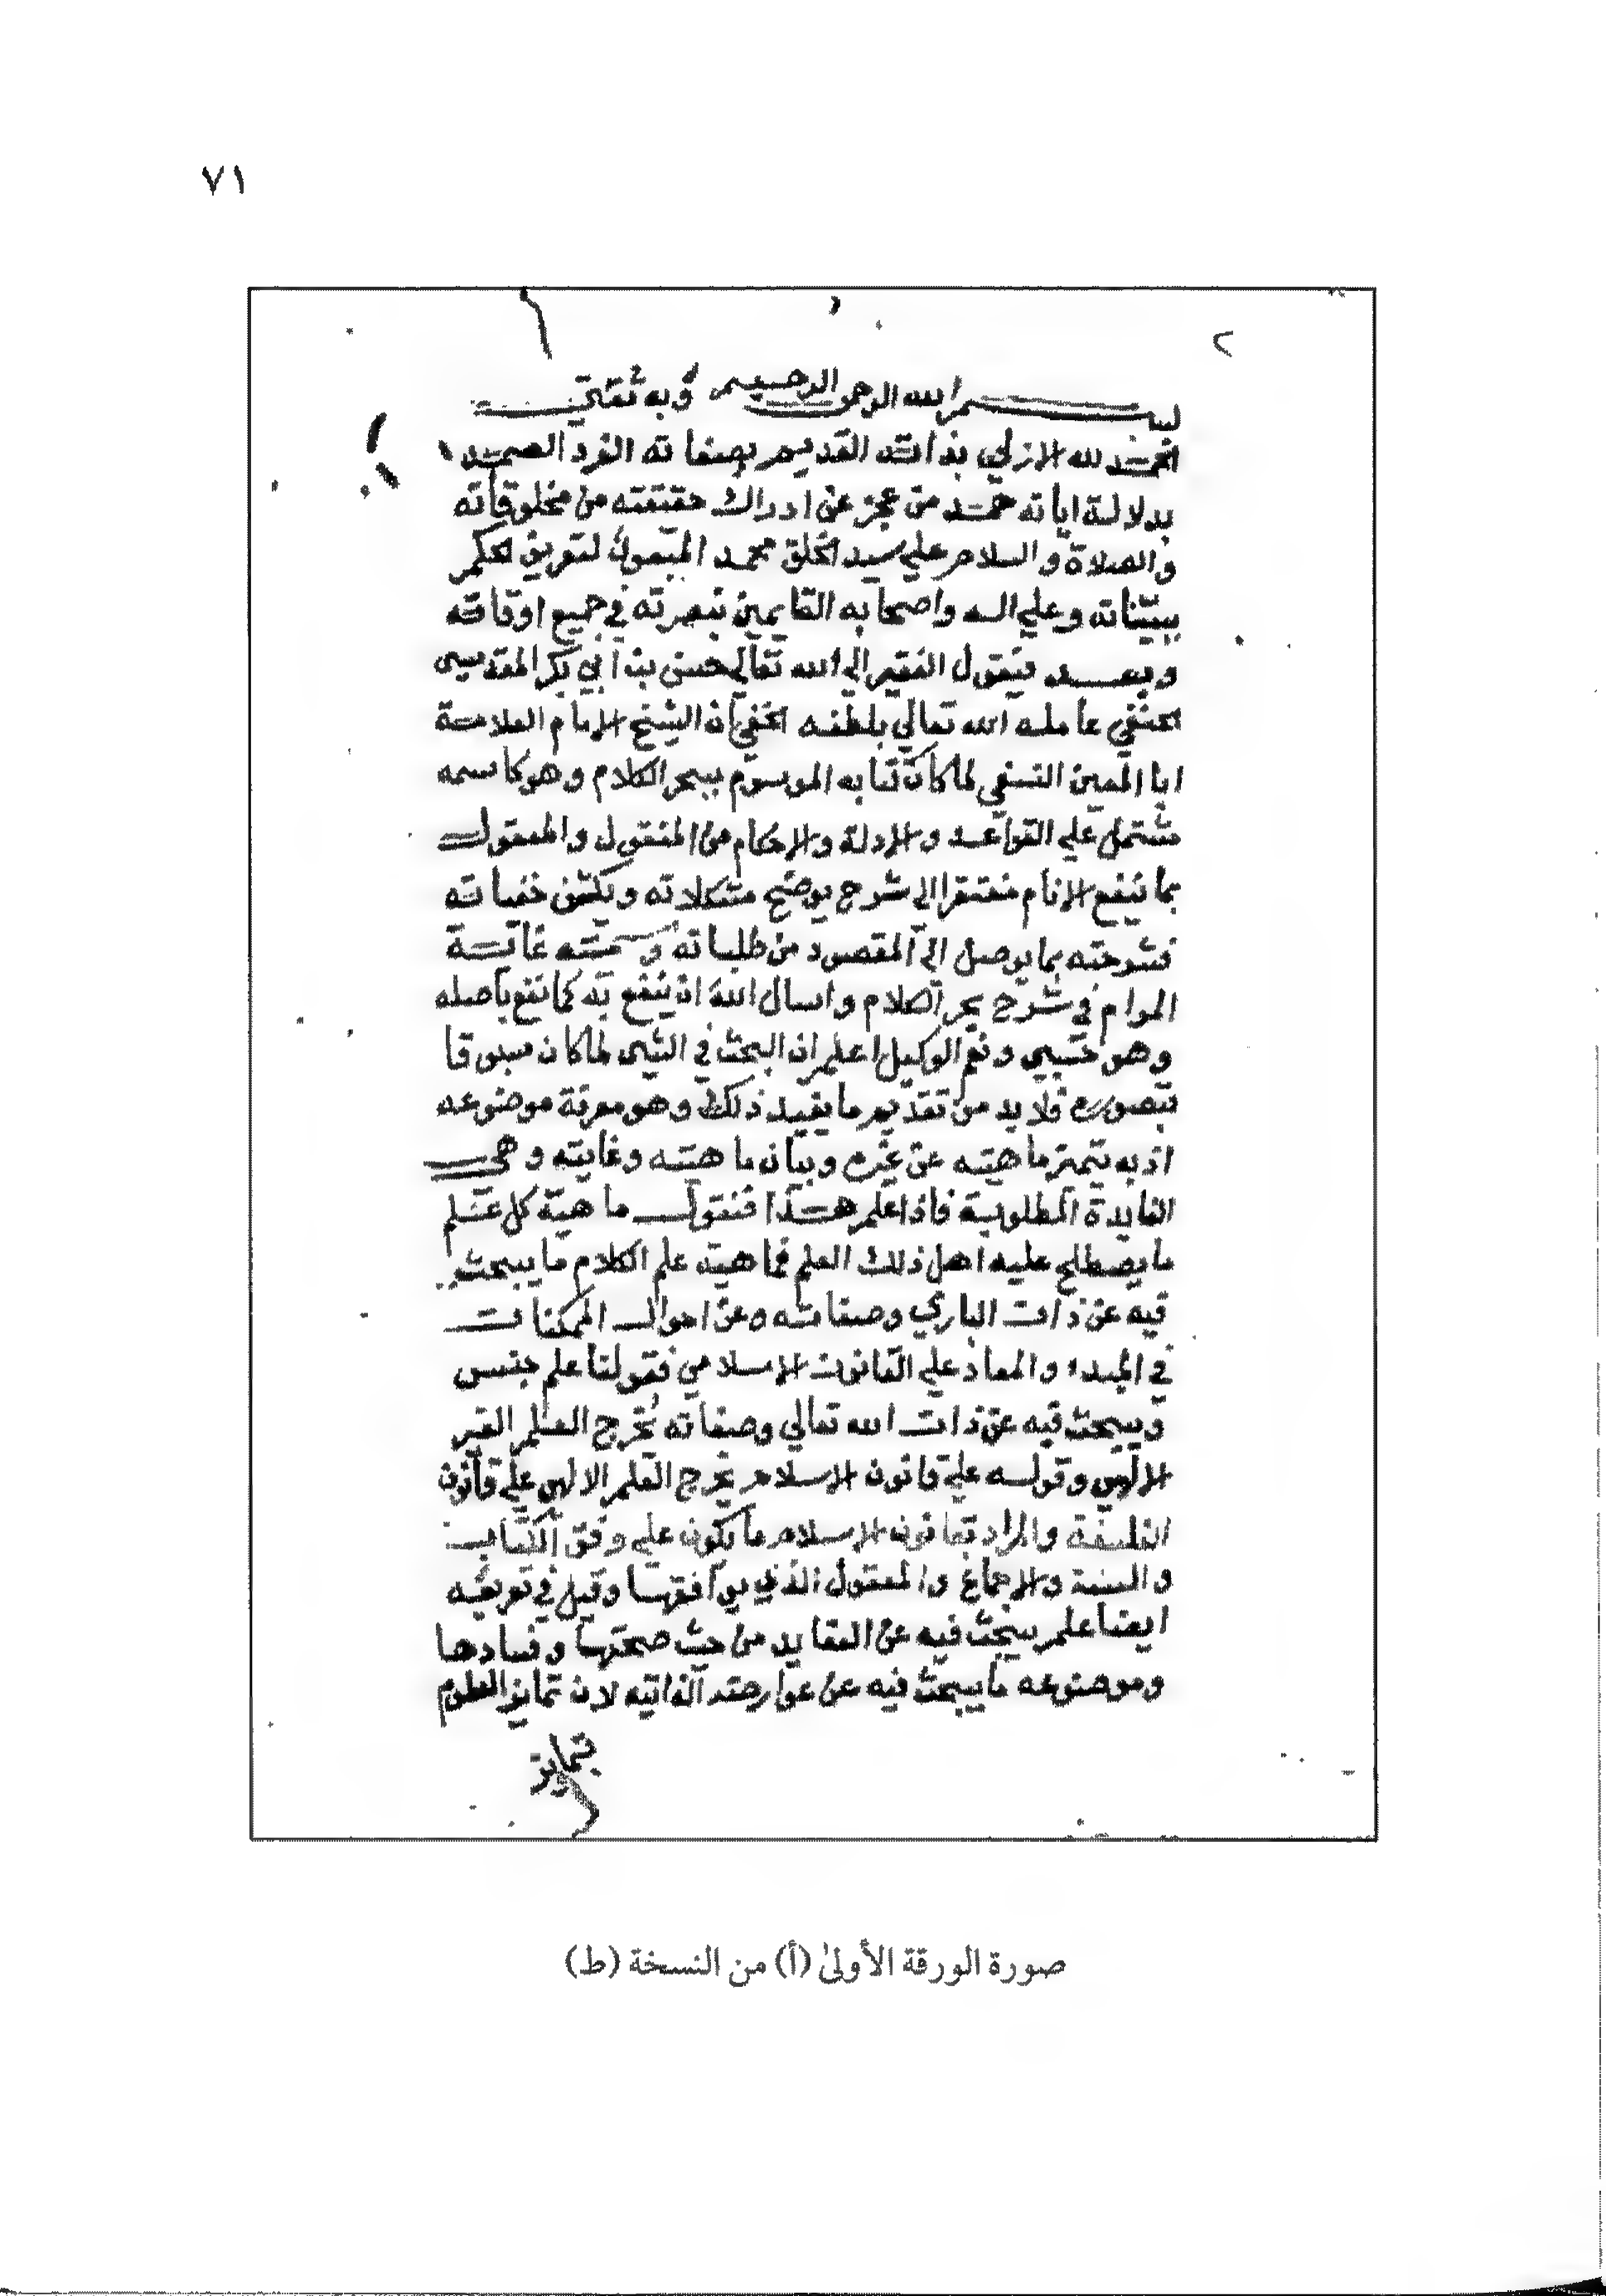 ٧١
٢
بسم الله الرحمن الرحيم وبه ثقتي
الحمد لله الازلي بذاته القديم بصفاته الفرد الصمد
بدلالة اياته حمد من عجز عن ادراك حقيقته من مخلوقاته
والصلاة والسلام علي سيد الخلق محمد المبعوث لتعريف الحكم
ببيناته وعلي اله واصحابه القايمين بنصرته في جميع اوقاته
وبعد فيقول الفقير الي الله تعالي حسن بن ابي بكر المقدسي
الحنفي عامله الله تعالي بلطفه الخفي ان الشيخ الامام العلامة
ابا المعين النسفي لما كان كتابه الموسوم ببحر الكلام وهو كاسمه
مشتمل علي القواعد والادلة والاحكام من المنقول والمعقول
بما ينفع الانام مفتقرا الي شرح يوضح مشكلاته ويكشف خفياته
فشرحته بما يوصل الي المقصود من طلباته وسميته غاية
المرام في شرح بحر الكلام واسال الله ان ينفع به كما نفع باصله
وهو حسبي ونعم الوكيل اعلم ان البحث في الشي لما كان مسبوقا
بتصوره فلا بد من تقديم ما يفيد ذلك وهو معرفة موضوعه
اذ به يتميز ماهيته عن غيره وبيان ماهيته وغايته وهي
الفايدة المطلوبة فاذا علم هذا فنقول ماهية كل علم
ما يصطلح عليه اهل ذلك العلم فماهية علم الكلام ما يبحث
فيه عن ذات الباري وصفاته وعن احوال الممكنات
في المبداء والمعاد علي القانون الاسلامي فقولنا علم جنس
ويبحث فيه عن ذات الله تعالي وصفاته يخرج العلم الغير
الالهي وقوله علي قانون الاسلام يخرج العلم الالهي علي قانون
الفلسفة والمراد بقانون الاسلام ما يكون علي وفق الكتاب
والسنة والاجماع والمعقول الذي يوافقها وقيل في تعريفه
ايضا علم يبحث فيه عن العقايد من حيث صحتها وفسادها
وموضوعه ما يبحث فيه عن عوارضه الذاتيه لان تمايز العلوم
بتمايز
صورة الورقة الأولىٰ (أ) من النسخة (ط)